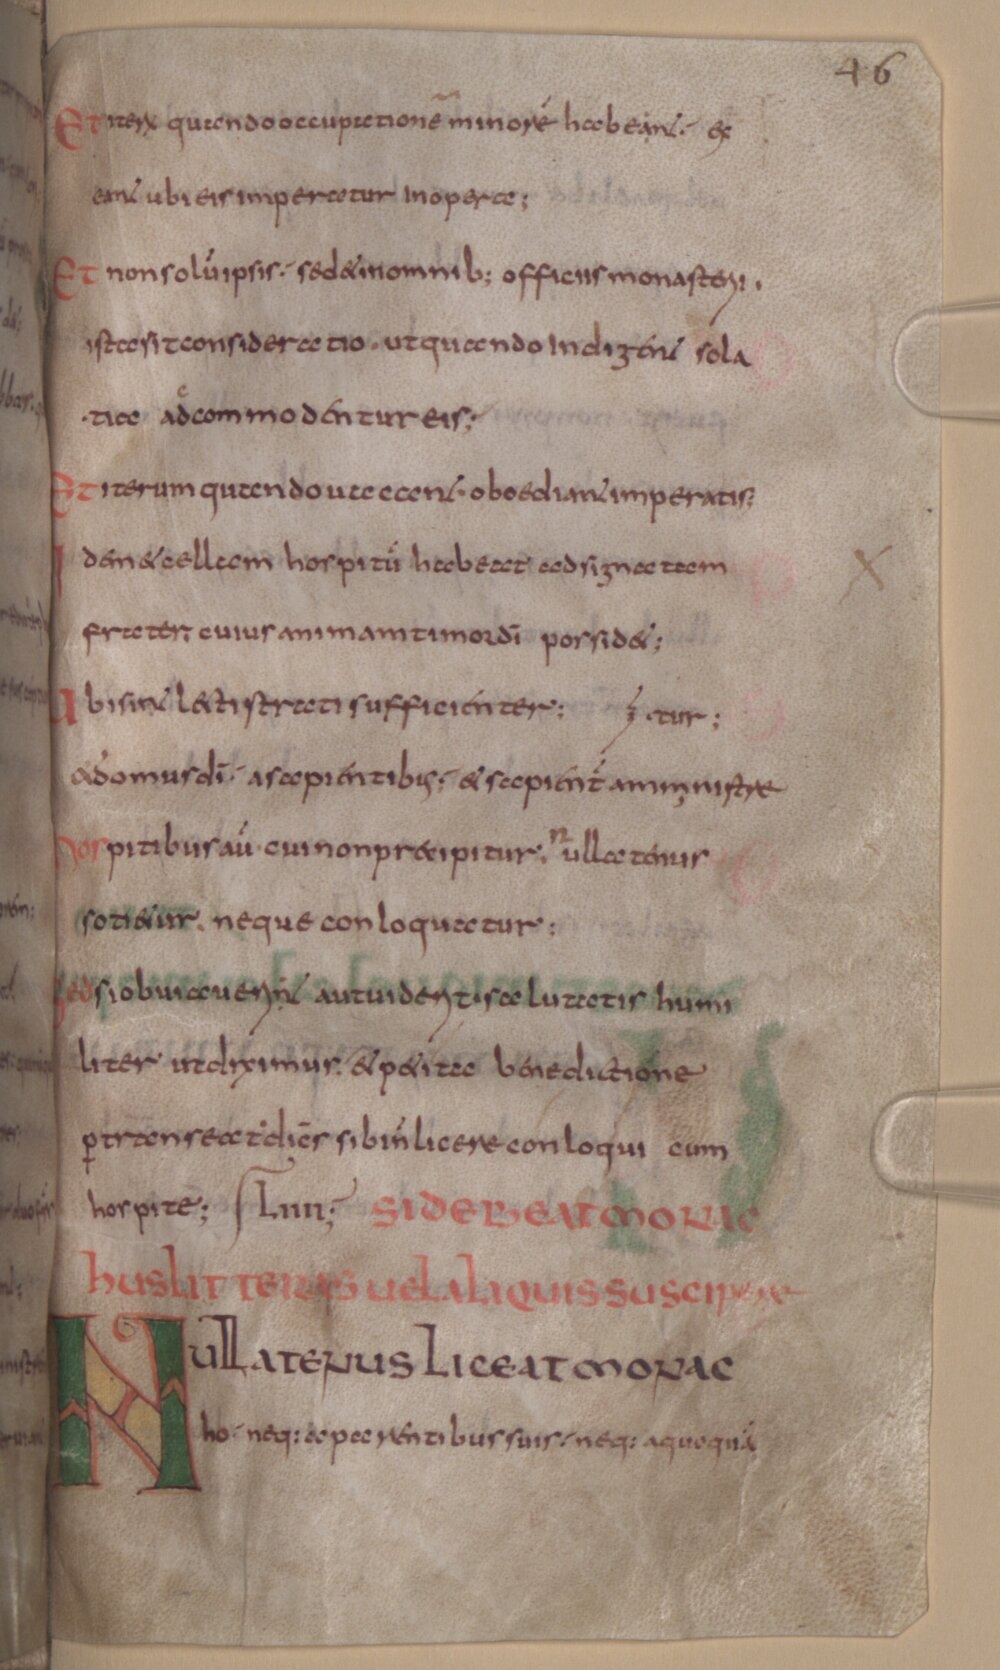 46
Et iterū quando occupationē minorē habeant· ex
eant ubi eis imperatur inopera;
Et non solū ipsis· sed & inomnib; officiis monasterii·
ista sit consideratio· ut quando indigent sola
·tia adcommodentur eis;
Et iterum quando uacant· oboediant imperatis;
Idem & cellam hospitū habeat adsignatam
frater, cuius animam timor dī possideat;
Ubi sint lecti strati sufficienter; ·tur;
& domus dī· a sapientibus· & sapient amministre
Hospitibus aū cui non praecipitur· nullatenus
soti&ur, neque conloquatur;
Sed si obuiauerit aut uiderit salutatis humi
liter ut diximus· & p&ita benedictione
ptranseat dicēs sibi n̄ licere conloqui cum
hospite; LIIII; SI DEBEAT MONAC
HUS LITTERAS UEL ALIQUIS SUSCIPERE
NULLATENUS LICEAT MONAC
ho· neq; a parentibus suis· neq; aquoquā